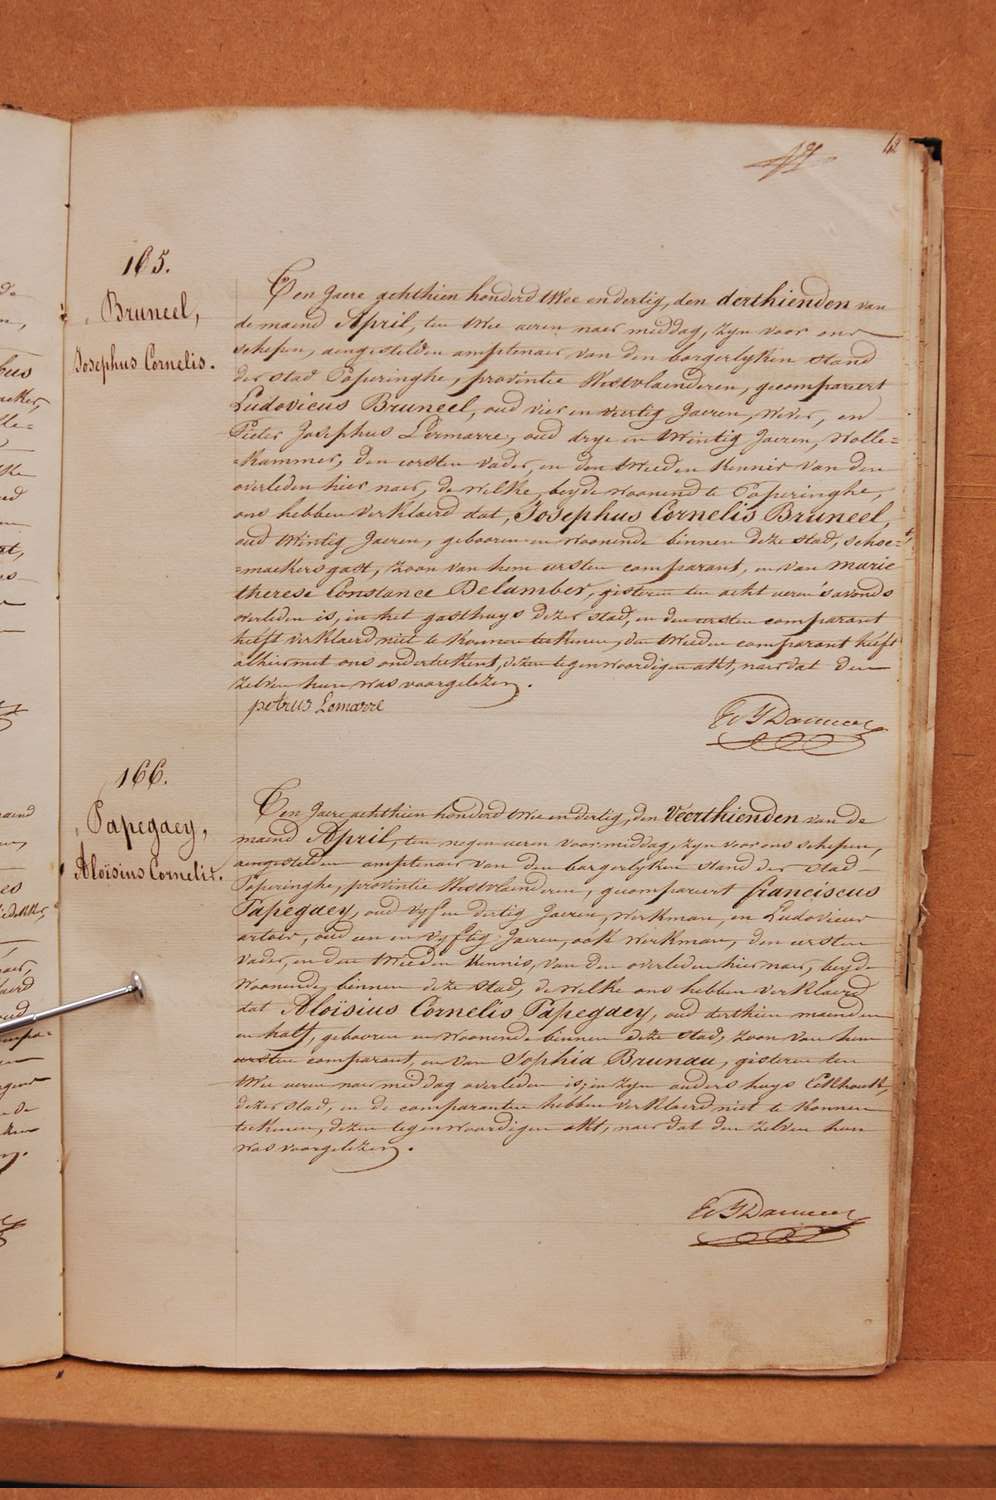 165.
Bruneel,
Josephus Cornelis.
Ten Jaere achthien honderd twee en dertig, den derthienden van
de maend April, ten twee ueren naer middag, zyn voor ons
schepen, aengestelden amptenaer van den borgerlyken stand
der stad Poperinghe, provintie Westvlaenderen, gecompareert
Ludovicus Bruneel, oud vier en veertig Jaeren, wever, en
Pieter Josephus Lermarre, oud drye en twintig Jaeren, wolle=
=kammer, den eersten vader, en den tweeden kennis van den
overleden hier naer, de welke beyde woonende te Poperinghe,
ons hebben verklaerd dat, Josephus Cornelis Bruneel,
oud twintig Jaeren, gebooren en woonende binnen deze stad, schoe=
=maekersgast, zoon van hem eersten comparant, en van Marie
therese Constance Delamber, gisteren ten acht ueren 's avonds
overleden is, in het gasthuys dezer stad, en den eersten comparant
heeft verklaerd niet te konnen teekenen, den tweeden comparant heeft
alhier met ons onderteekent, dezen tegenwoordigen akt, naer dat den
zelven hun was voorgelezen.
petrus Lemarre
166.
Papegaey,
Aloïsius Cornelis.
Ten Jaere achthien honderd twee en dertig, den Veerthienden van de
maend April, ten negen ueren voormiddag, zyn voor ons schepen,
aengestelden amptenaer van den borgerlyken stand der stad
Poperinghe, provintie Westvlaenderen, gecompareert franciscus
Papegaey, oud vyf en dertig Jaeren, werkman, en Ludovicus
artois, oud een en vyftig Jaeren, ook werkman, den eersten
vader, en den tweeden kennis, van den overleden hier naer, beyde
woonende binnen deze stad, de welke ons hebben verklaerd
dat Aloïsius Cornelis Papegaey, oud derthien maenden
en half, gebooren en woonende binnen deze stad, zoon van hem
eersten comparant, en van Sophia Brunau, gisteren ten
twee ueren naer middag overleden is, in zyn ouders huys Eekhoutt,
dezer stad, en de comparanten hebben verklaerd niet te konnen
teekenen, dezen tegenwoordigen akt, naer dat den zelven hun
was voorgelezen.